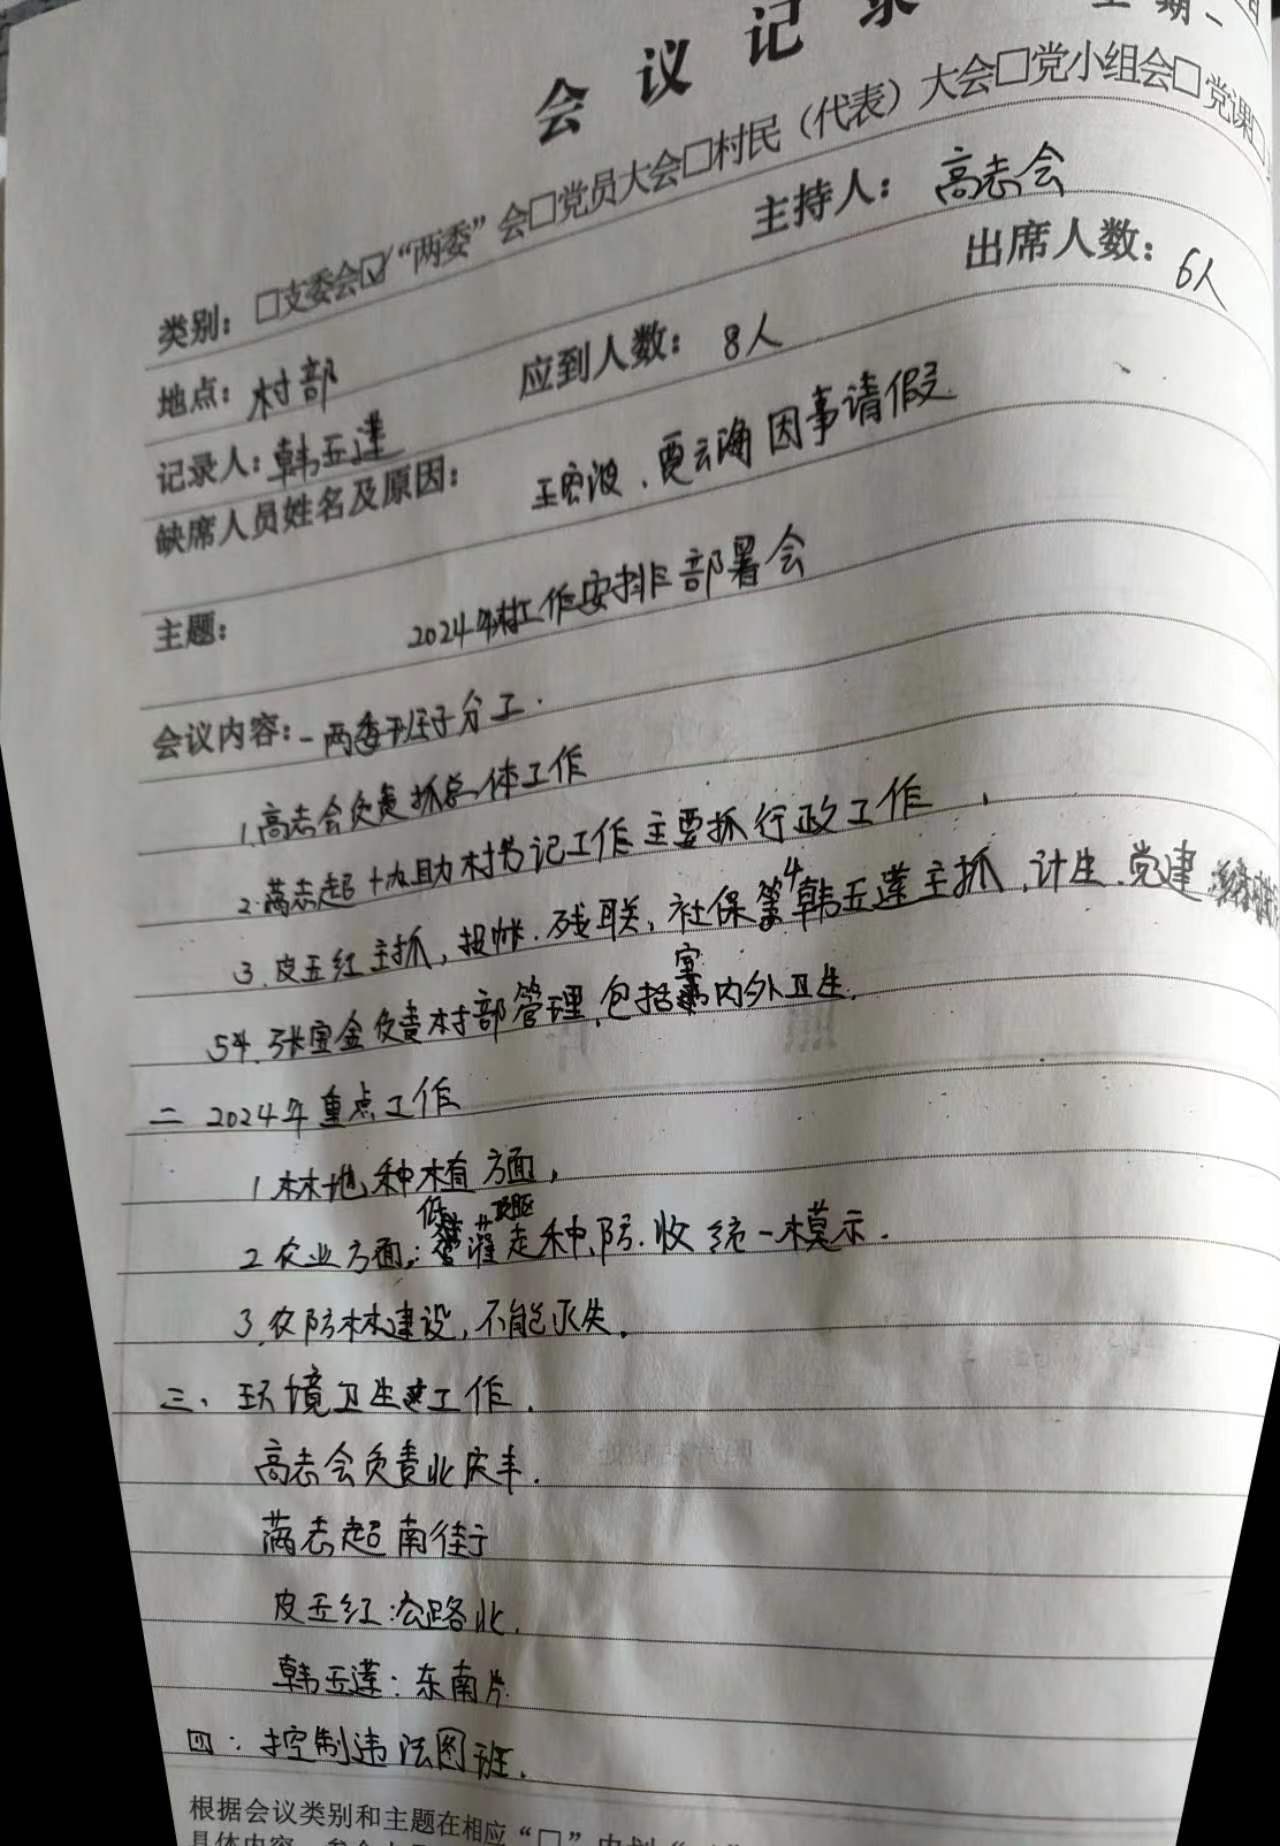 会议记录
星期一
类别：□支委会☑“两委”会□党员大会□村民（代表）大会□党小组会□党课□
地点：村部 主持人：高志会
记录人：韩玉莲 应到人数：8人 出席人数：6人
缺席人员姓名及原因：王宏波、贾云海因事请假
主题：2024年村工作安排部署会
会议内容：一两委班子分工.
1.高志会负责抓总体工作
2.蒿志超协助村书记工作主要抓行政工作
3.皮玉红主抓，报帐.残联，社保 4韩玉莲主抓，计生.党建
5.张宝金负责村部管理，包括室内外卫生.
二 2024年重点工作
1林地种植方面，
2农业方面：走种、防.收统一模示.
3.农防林建设，不能灭失.
三、环境卫生工作.
高志会负责北庆丰.
蒿志超南街子
皮玉红：公路北.
韩玉莲：东南片.
四：控制违法图班.
根据会议类别和主题在相应“□”内划
具体内容